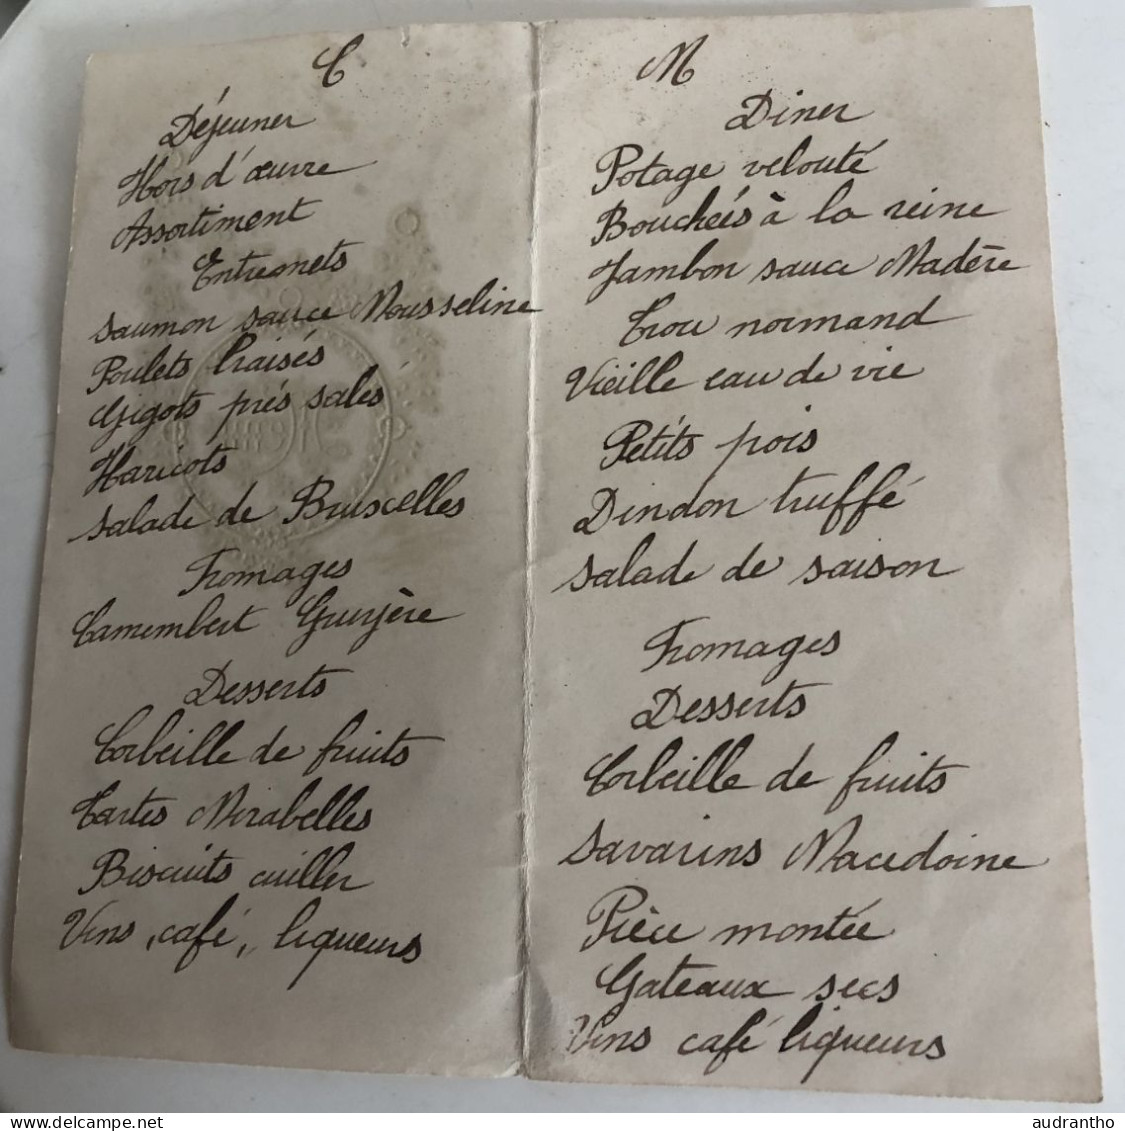 C
Déjeuner
Hors d'œuvre
Assortiment
Entremets
Saumon sauce Mousseline
Poulets braisés
Gigots prés salés
Haricots
Salade de Bruscelles
Fromages
Camembert Gruyère
Desserts
Corbeille de fruits
Tartes Mirabelles
Biscuits cuiller
Vins, café, liqueurs
M
Diner
Potage velouté
Bouchées à la reine
Jambon sauce Madère
Trou normand
Vieille eau de vie
Petits pois
Dindon truffé
Salade de saison
Fromages
Desserts
Corbeille de fruits
Savarins Macedoine
Pièce montée
Gateaux secs
Vins café liqueurs
delcampe.net
audrantho